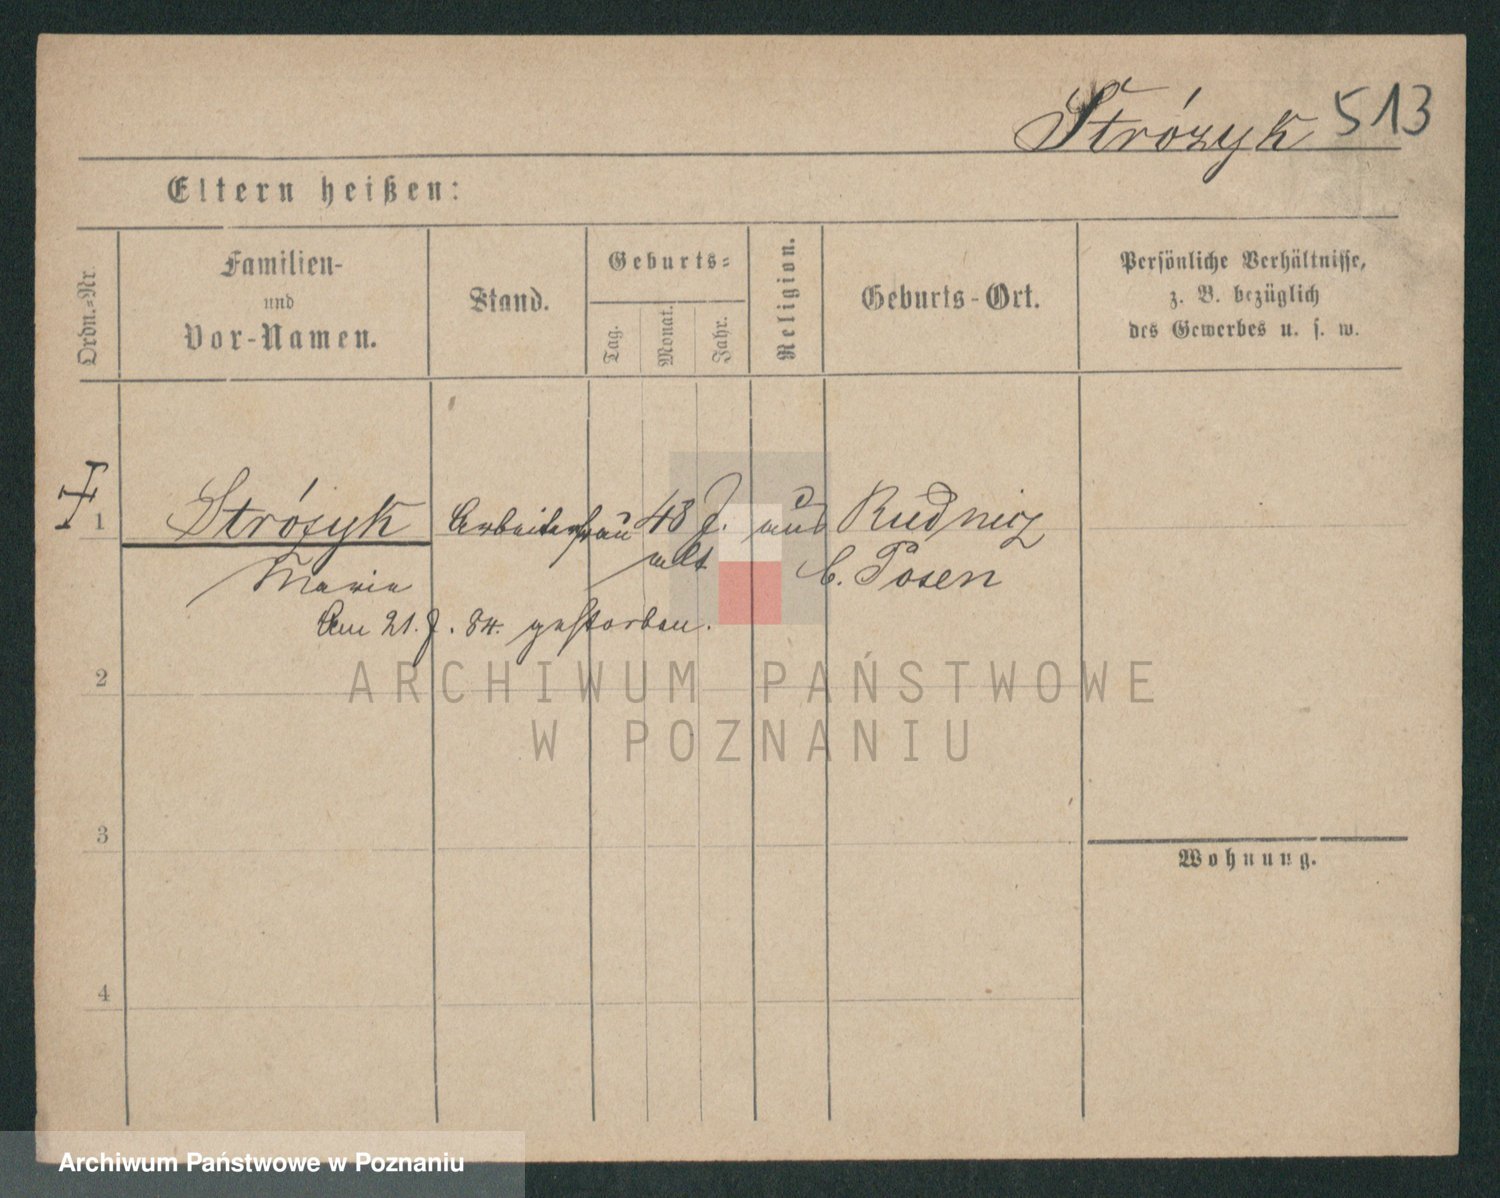 Strózyk 513
Eltern heißen:
Ordn.-Nr.
Familien-
und
Vor-Namen.
Stand.
Geburts-
Tag.
Monat.
Jahr.
Religion.
Geburts-Ort.
Persönliche Verhältnisse,
z. B. bezüglich
des Gewerbes u. s. w.
1 Strózyk Arbeiterfrau 48 J. aus Rudnicz
Marie alt b. Posen
Am 21. 7. 84. gestorben.
2
3
4
Wohnung.
ARCHIWUM PAŃSTWOWE
W POZNANIU
Archiwum Państwowe w Poznaniu